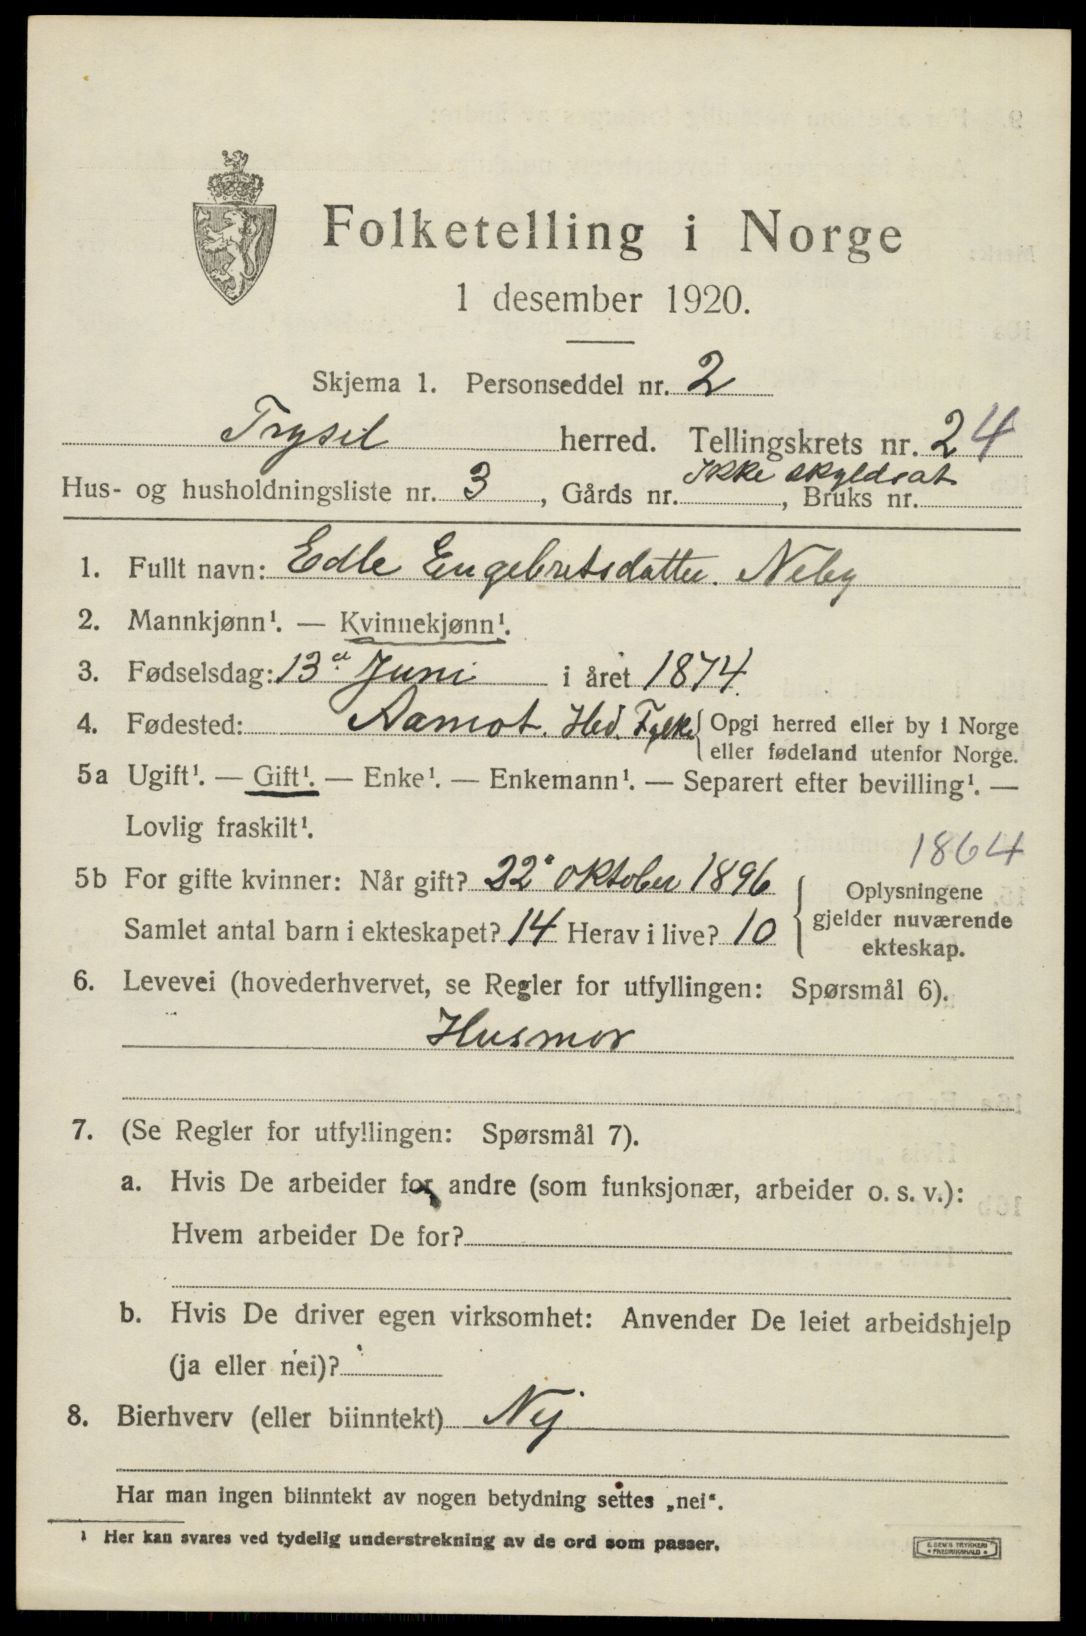 Folketelling i Norge
1 desember 1920.
Skjema 1. Personseddel nr. 2
Trysil herred. Tellingskrets nr. 24
Ikke skyldsat
Hus- og husholdningsliste nr. 3, Gårds nr. , Bruks nr.
1. Fullt navn: Edle Engebretsdatter. Neby
2. Mannkjønn¹. — Kvinnekjønn¹.
3. Fødselsdag: 13de Juni i året 1874
4. Fødested: Aamot. Hed. Fylke { Opgi herred eller by i Norge
eller fødeland utenfor Norge.
5a Ugift¹. — Gift¹. — Enke¹. — Enkemann¹. — Separert efter bevilling¹. —
Lovlig fraskilt¹.
1864
5b For gifte kvinner: Når gift? 22' Oktober 1896 { Oplysningene
gjelder nuværende
ekteskap.
Samlet antal barn i ekteskapet? 14 Herav i live? 10
6. Levevei (hovederhvervet, se Regler for utfyllingen: Spørsmål 6).
Husmor
7. (Se Regler for utfyllingen: Spørsmål 7).
a. Hvis De arbeider for andre (som funksjonær, arbeider o. s. v.):
Hvem arbeider De for?
b. Hvis De driver egen virksomhet: Anvender De leiet arbeidshjelp
(ja eller nei)?
8. Bierhverv (eller biinntekt) Nej
Har man ingen biinntekt av nogen betydning settes „nei“.
¹ Her kan svares ved tydelig understrekning av de ord som passer.
E. SEM'S TRYKKERI
• FREDRIKSHALD •